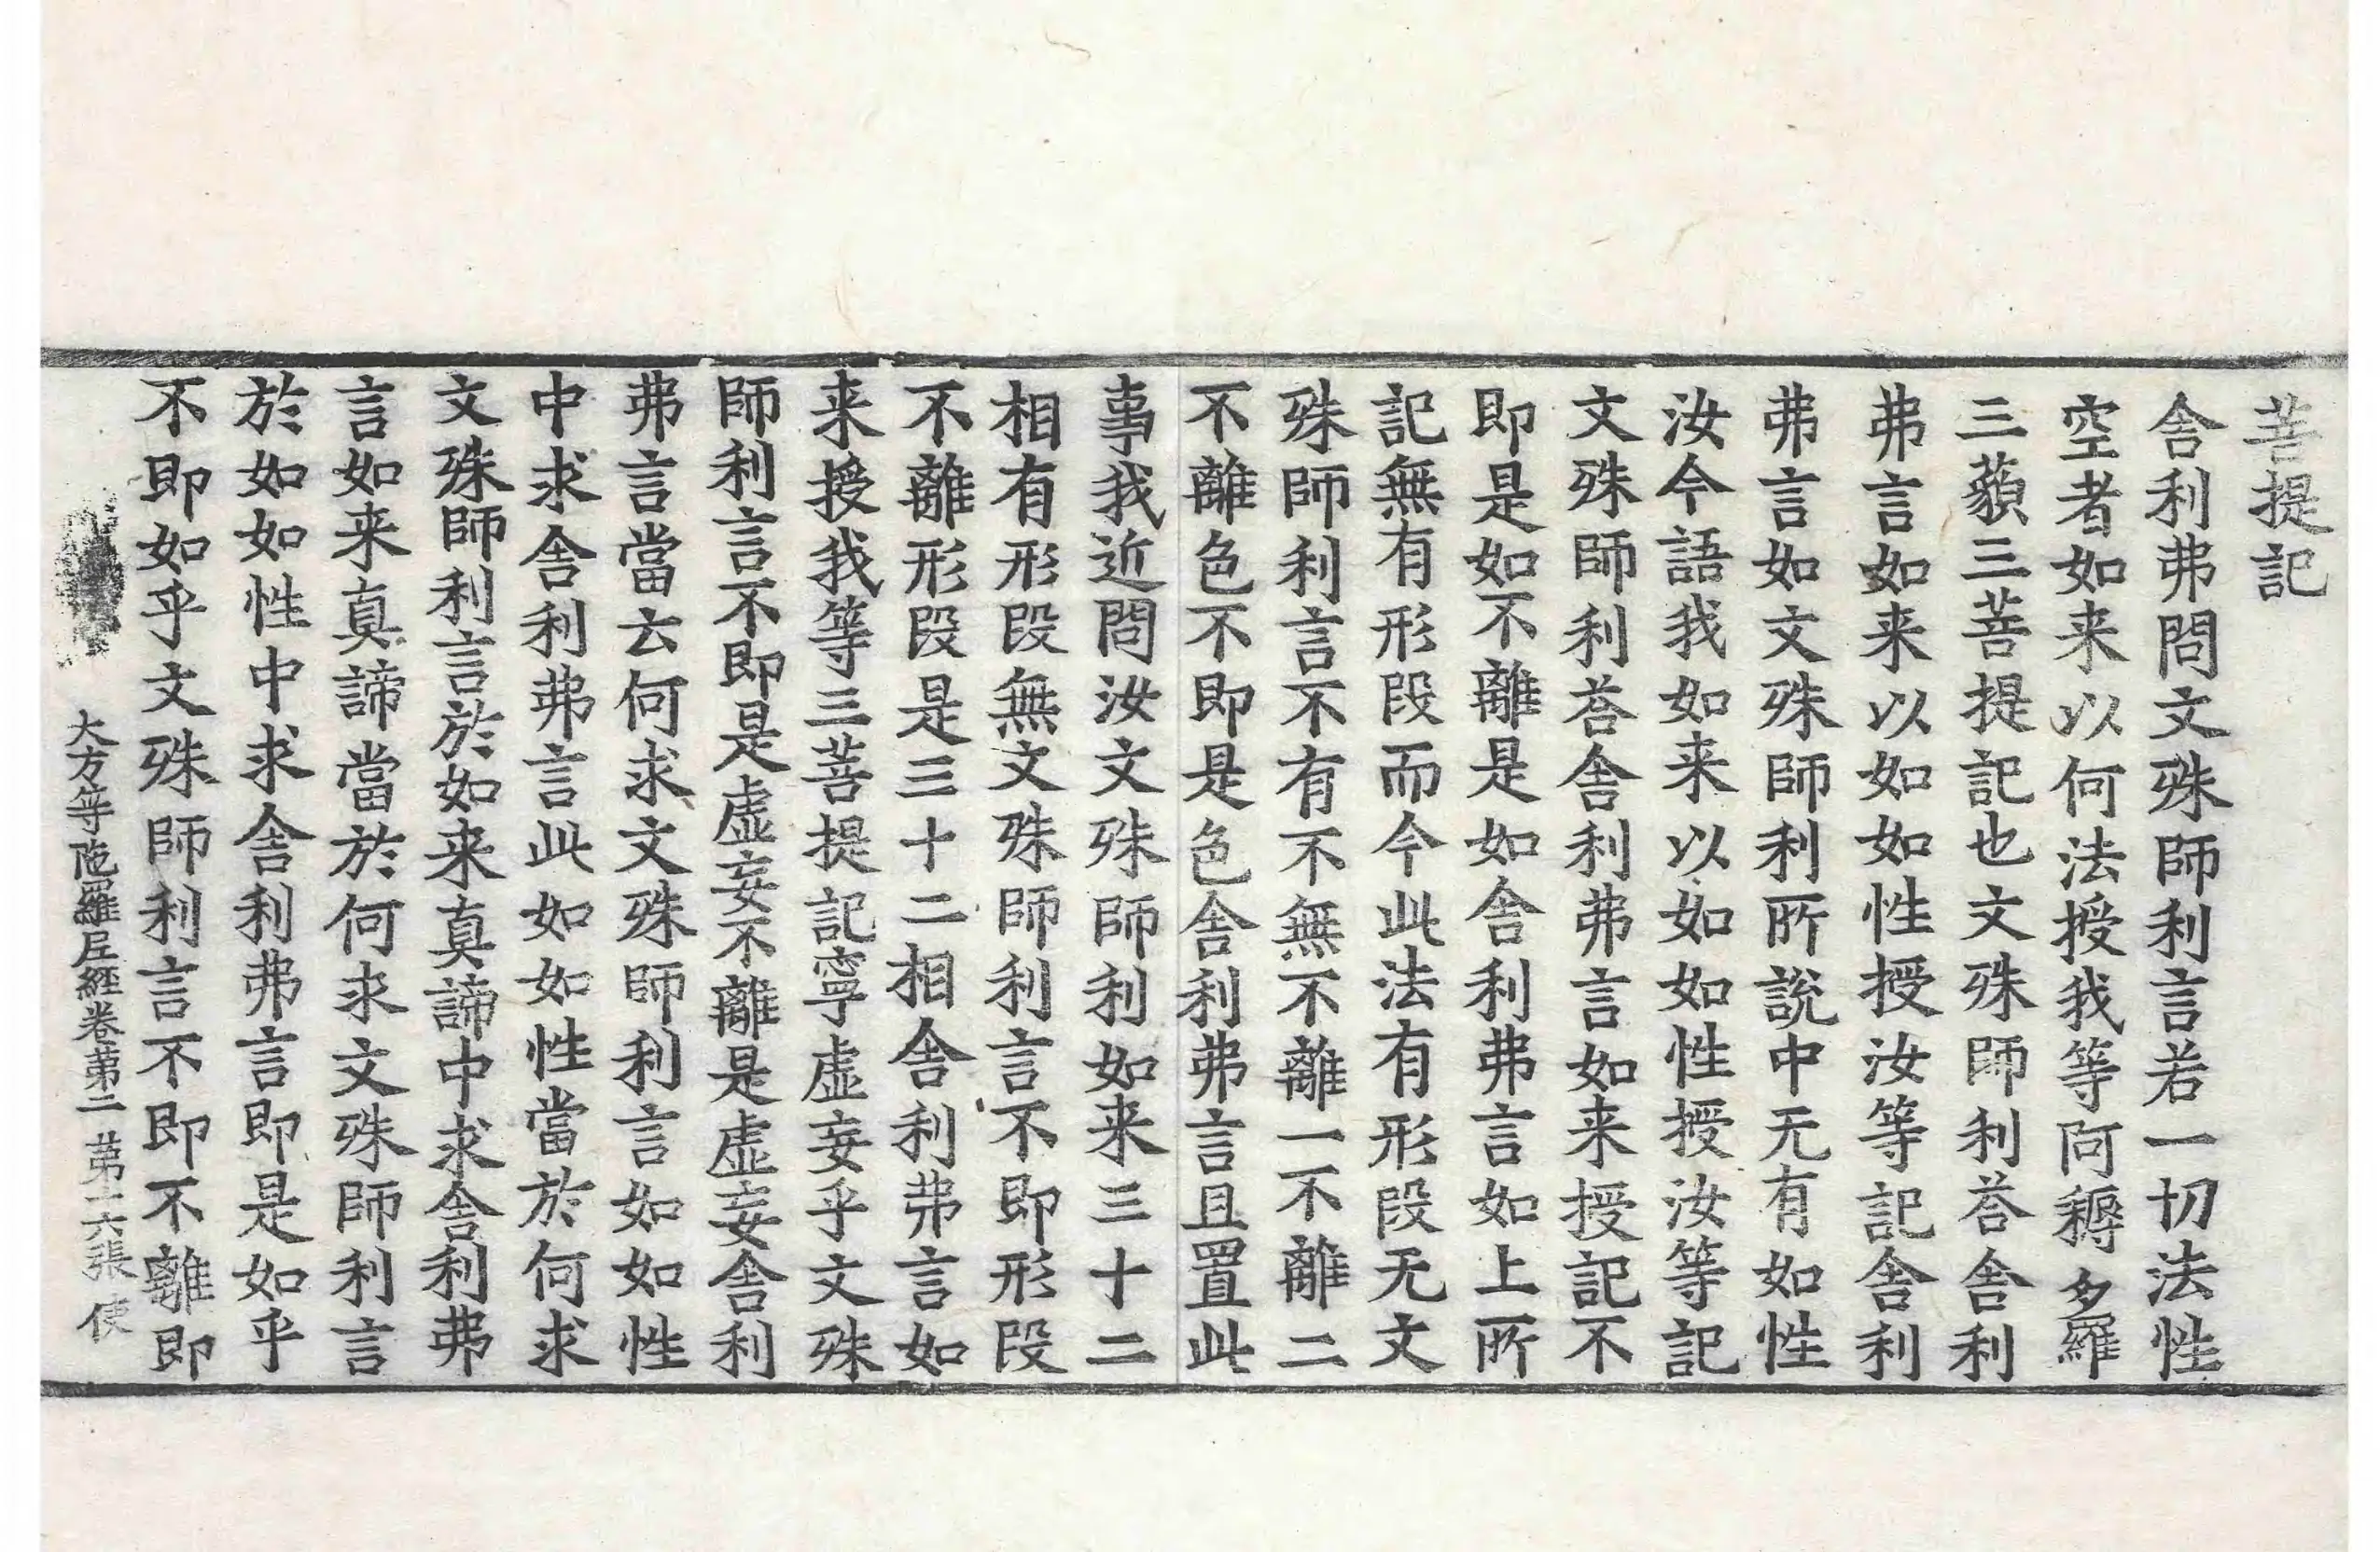 菩提記
舍利弗問文殊師利言若一切法性
空者如来以何法授我等阿耨多羅
三藐三菩提記也文殊師利荅舍利
弗言如来以如如性授汝等記舍利
弗言如文殊師利所說中无有如性
汝今語我如来以如如性授汝等記
文殊師利荅舍利弗言如来授記不
即是如不離是如舍利弗言如上所
記無有形段而今此法有形段无文
殊師利言不有不無不離一不離二
不離色不即是色舍利弗言且置此
事我近問汝文殊師利如来三十二
相有形段無文殊師利言不即形段
不離形段是三十二相舍利弗言如
来授我等三菩提記寧虛妄乎文殊
師利言不即是虛妄不離是虛妄舍利
弗言當云何求文殊師利言如如性
中求舍利弗言此如如性當於何求
文殊師利言於如来真諦中求舍利弗
言如来真諦當於何求文殊師利言
於如如性中求舍利弗言即是如乎
不即如乎文殊師利言不即不離即
大方等陁羅尼經卷苐二 苐十六張 使